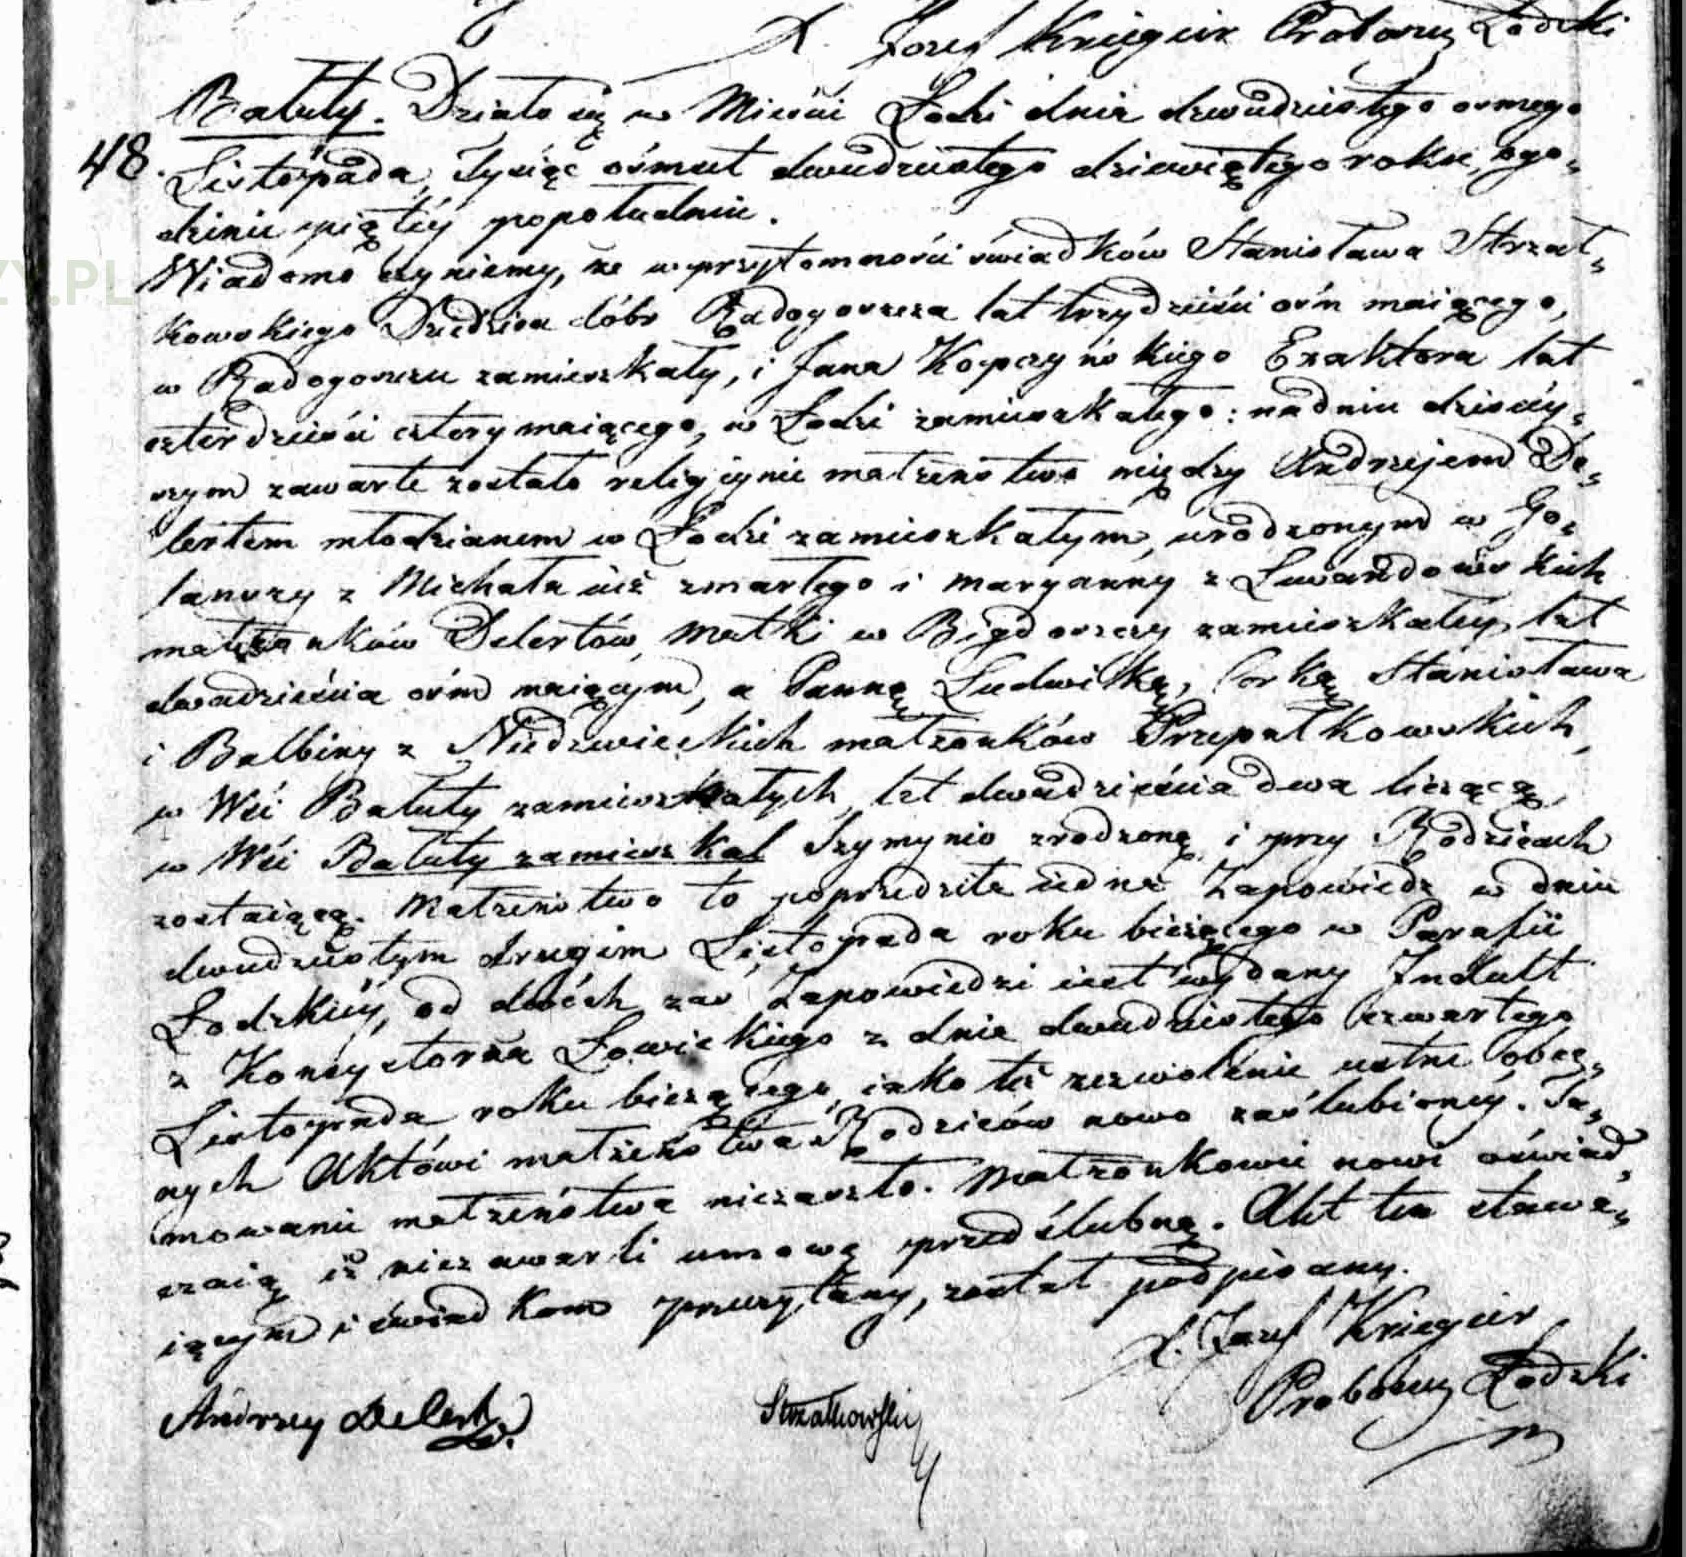 X. Jozef Kriegeir Proboszcz Łodzki
Bałuty. Działo się w Mieście Łodzi dnia dwudziestego osmego
48. Listopada, Tysiąc ośmset dwudziestego dziewiątego roku, o go-
dzinie piątéy popołudniu.
Wiadomo czyniemy, że w przytomności świadków Stanisława Strzał-
kowskiego Dziedzica dóbr Radogoszcza lat trzydzieści ośm maiącego,
w Radogoszczu zamieszkały, i Jana Kopczyńskiego Exaktora lat
czterdzieści cztery maiącego, w Łodzi zamieszkałego: na dniu dzisiéy-
szym zawarte zostało religijnie małżeństwo między Andrzejem De-
lertem młodzianem w Łodzi zamieszkałym, urodzonym w Go-
łanczy z Michała iuż zmarłego i Maryanny z Lewandowskich
małżonków Delertów, Matki w Bydgoszczy zamieszkałéy lat
dwadzieścia ośm maiącym, a Panną Ludwiką, Corką Stanisława
i Balbiny z Niedzwieckich małżonków Przepałkowskich,
w Wsi Bałuty zamieszkałych, lat dwadzieścia dwa liczącą,
w Wsi Bałuty zamieszkał Szymynio zrodzoną i przy Rodzicach
zostaiącą. Małżeństwo to poprzedziła iedna Zapowiedź w dniu
dwudziestym drugim Listopada roku bieżącego w Parafii
Łodzkiéy, od dwóch zaś Zapowiedzi iest wydany Indult
z Konsystorza Łowickiego z dnia dwudziestego czwartego
Listopada roku bieżącego, iako też zezwolenie ustne obec-
nych Aktowi małżeństwa Rodziców nowo zaślubionéy. Ta-
mowanie małżeństwa niezaszło. Małżonkowie nowi oświad-
czaią iż niezawarli umowę przedślubną. Akt ten stawa-
iącym i świadkom przeczytany, został podpisany.
X. Jozef Kriegeir
Proboszcz Łodzki
Andrzey Delert
Strzałkowski